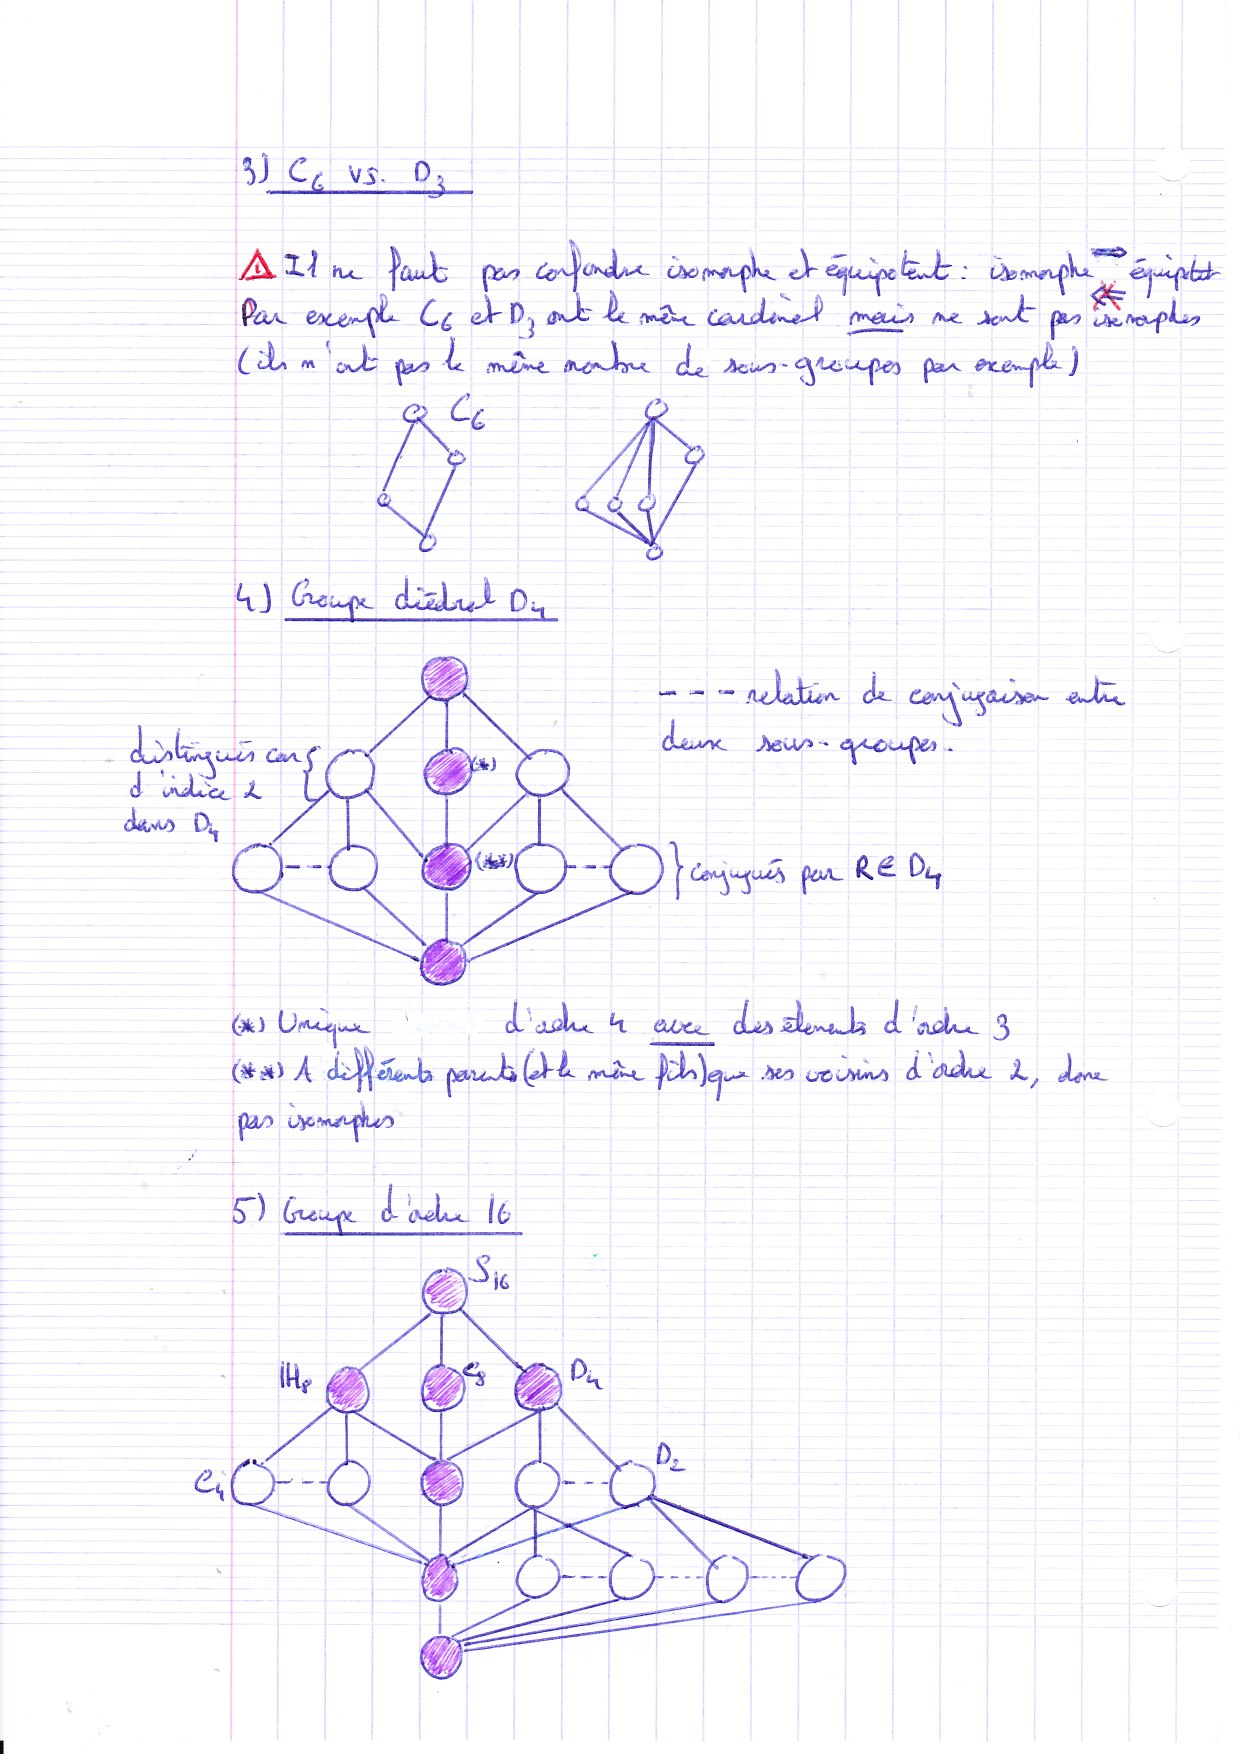 3) C6 vs. D3
Il ne faut pas confondre isomorphe et équipotent : isomorphe ⇒ équipotent
⇐
Par exemple C6 et D3 ont le même cardinal mais ne sont pas isomorphes
(ils n'ont pas le même nombre de sous-groupes par exemple)
C6
4) Groupe diédral D4
--- relation de conjugaison entre
deux sous-groupes.
distingués car
d'indice 2
dans D4
(*)
(**)
conjugués par R ∈ D4
(*) Unique d'ordre 4 avec des élements d'ordre 3
(**) A différents parents (et le même fils) que ses voisins d'ordre 2, donc
pas isomorphes
5) Groupe d'ordre 16
S16
IH8
C8
D4
C4
D2